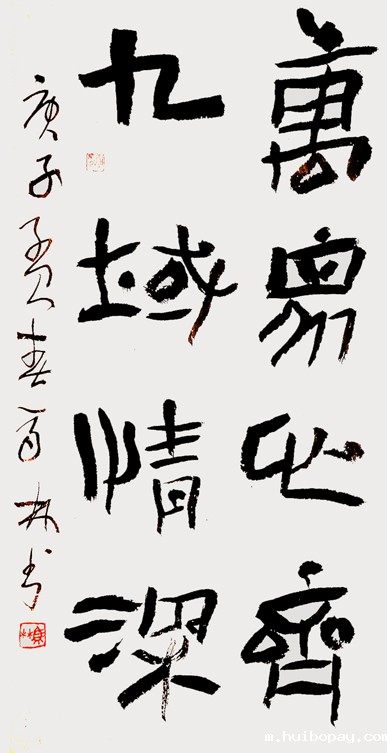 萬眾心齊
九域情深
庚子孟春 林书
m.huibopay.com